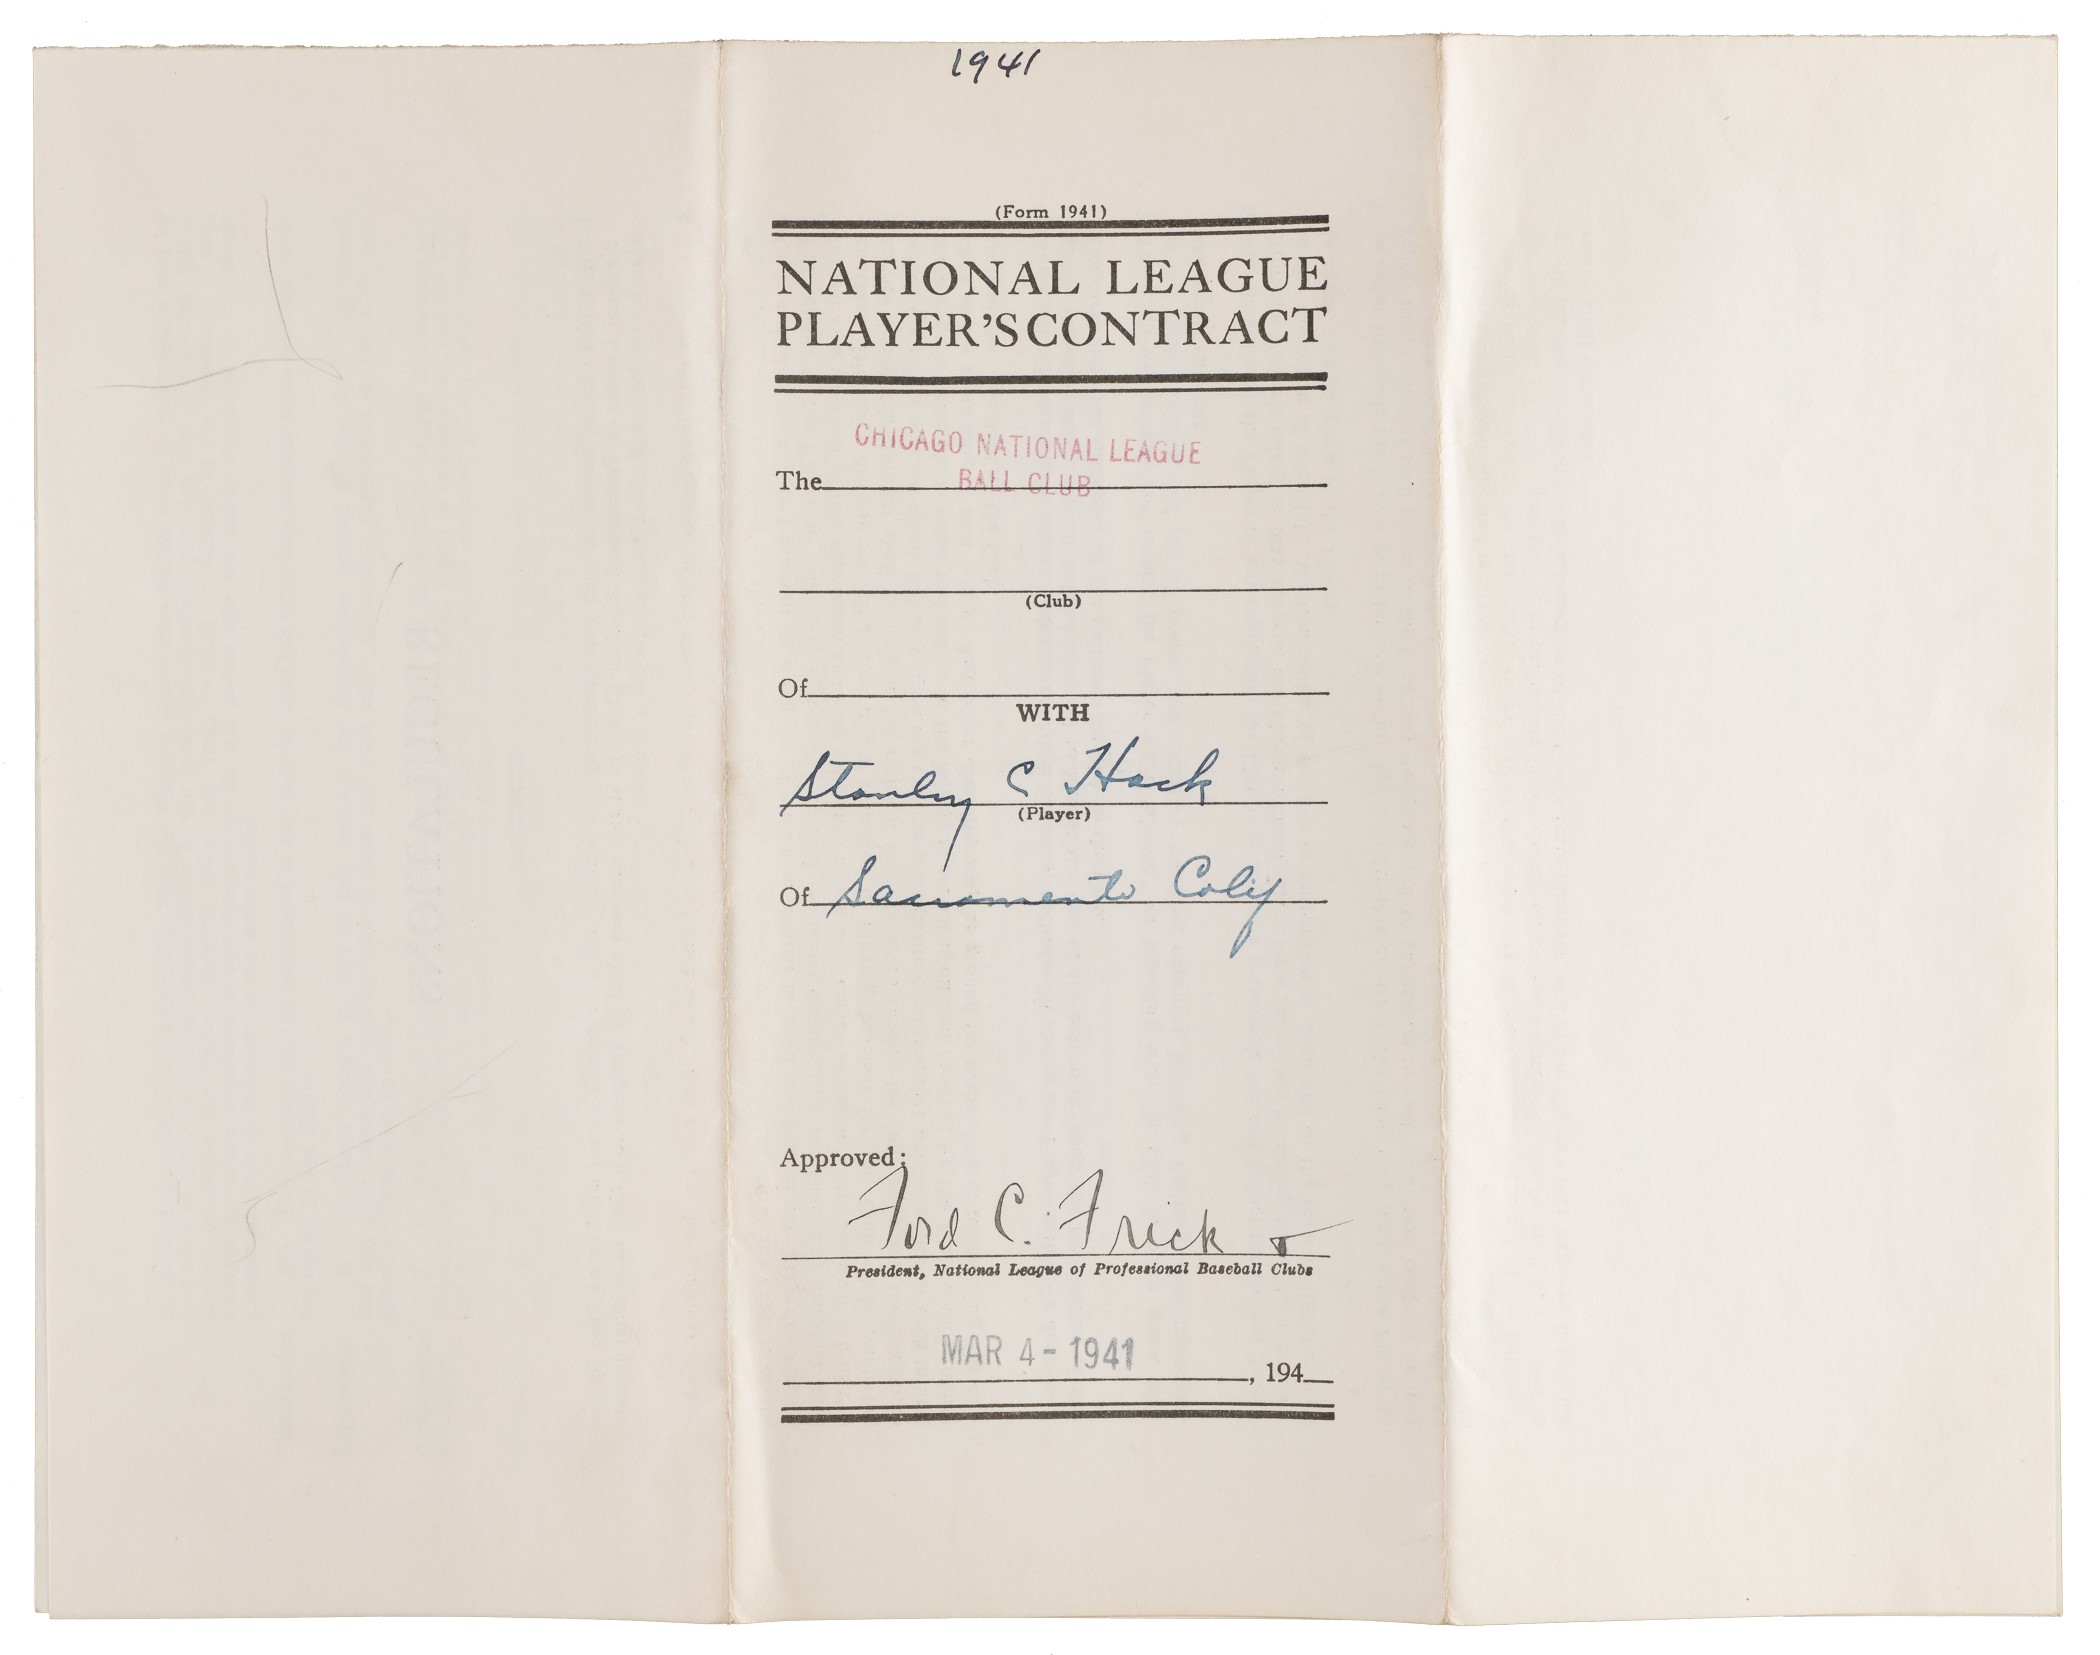 1941
(Form 1941)
NATIONAL LEAGUE
PLAYER'S CONTRACT
CHICAGO NATIONAL LEAGUE
The BALL CLUB
(Club)
Of
WITH
Stanley C Hack
(Player)
Of Sacramento Calif
Approved:
Ford C. Frick
President, National League of Professional Baseball Clubs
MAR 4-1941
, 194
REGULATIONS